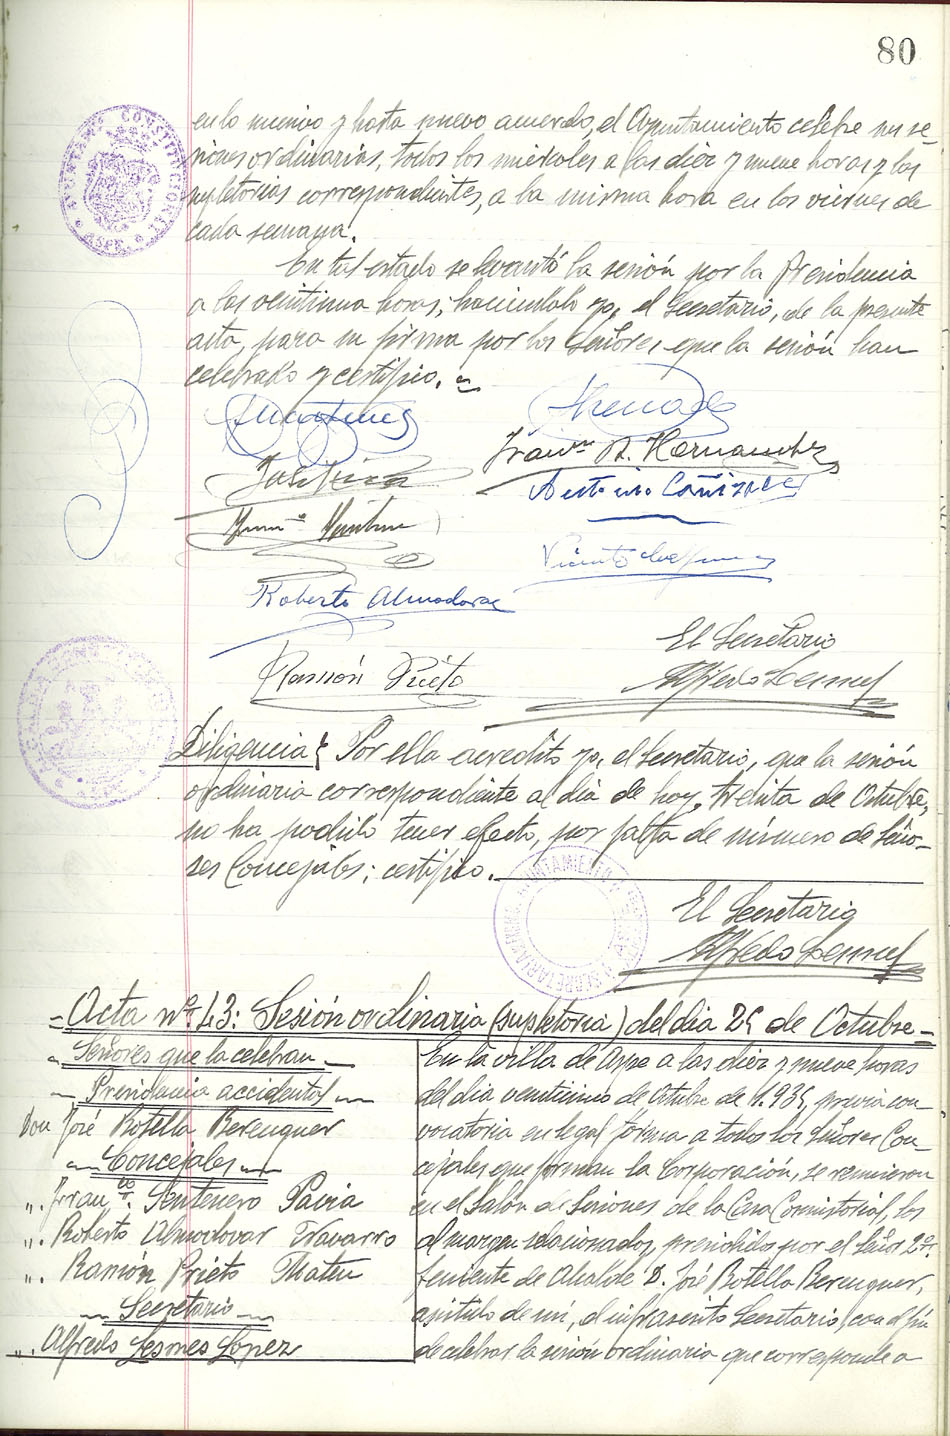 80
en lo sucesivo y hasta nuevo acuerdo, el Ayuntamiento celebre sus se-
siones ordinarias, todos los miércoles a las diez y nueve horas y las
supletorias correspondientes, a la misma hora en los viernes de
cada semana.
En tal estado se levantó la sesión por la Presidencia
a las veintiuna horas, haciéndolo yo, el Secretario, de la presente
acta, para su firma por los Señores que la sesión han
celebrado y certifico.
Franco. A. Hernandez
Antonio Cañizares
Roberto Almodovar
Ramón Prieto
El Secretario
Alfredo Lesmes
Diligencia } Por ella acredito yo, el Secretario, que la sesión
ordinaria correspondiente al dia de hoy, treinta de Octubre,
no ha podido tener efecto, por falta de número de Seño-
res Concejales; certifico.
El Secretario
Alfredo Lesmes
= Acta nº 43: Sesión ordinaria (supletoria) del dia 25 de Octubre =
Señores que la celebran
Presidencia accidental
Don José Botella Berenguer
Concejales
". Franco. Santenero Pavia
". Roberto Almodovar Navarro
". Ramón Prieto Mateu
Secretario
". Alfredo Lesmes Lopez
En la villa de Aspe a las diez y nueve horas
del dia veinticinco de Octubre de 1.935, previa con-
vocatoria en legal forma a todos los Señores Con-
cejales que forman la Corporación, se reunieron
en el Salón de Sesiones de la Casa Consistorial, los
al margen relacionados, presididos por el Señor 2º.
Teniente de Alcalde D. José Botella Berenguer,
asistido de mí, el infrascrito Secretario, con el fin
de celebrar la sesión ordinaria que corresponde a